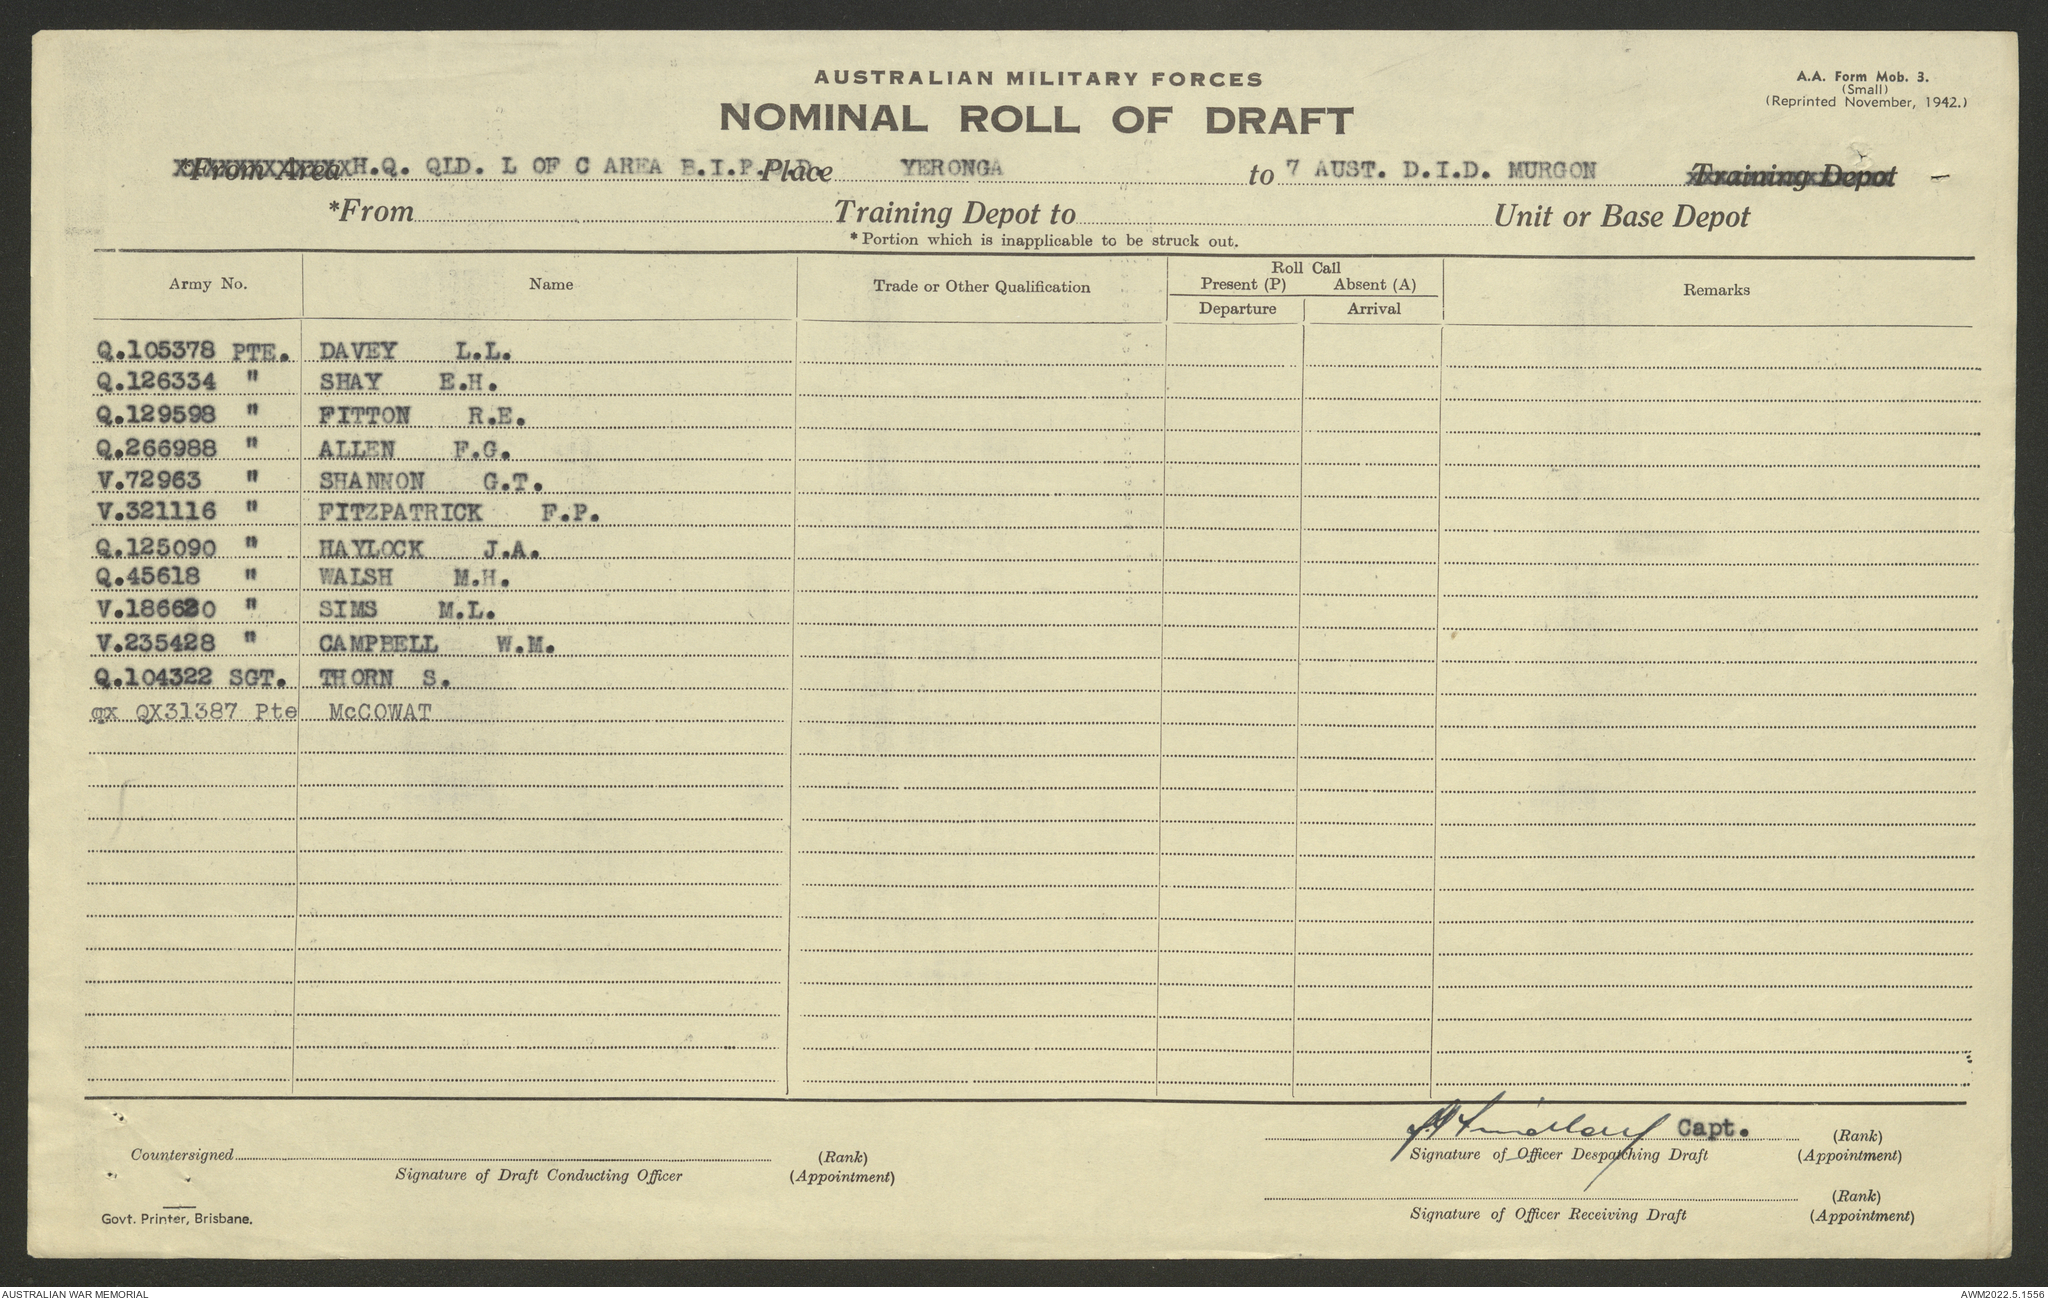 AUSTRALIAN MILITARY FORCES
A.A. Form Mob. 3.
(Small)
(Reprinted November, 1942.)
NOMINAL ROLL OF DRAFT
*From Area H.Q. QLD. L OF C AREA B.I.P.O.D. Place YERONGA to 7 AUST. D.I.D. MURGON Training Depot
*From Training Depot to Unit or Base Depot
*Portion which is inapplicable to be struck out.
Army No. Name Trade or Other Qualification Roll Call Remarks
Present (P) Absent (A)
Departure Arrival
Q.105378 PTE. DAVEY L.L.
Q.126334 " SHAY E.H.
Q.129598 " FITTON R.E.
Q.266988 " ALLEN F.G.
V.72963 " SHANNON G.T.
V.321116 " FITZPATRICK F.P.
Q.125090 " HAYLOCK J.A.
Q.45618 " WALSH M.H.
V.186620 " SIMS M.L.
V.235428 " CAMPBELL W.M.
Q.104322 SGT. THORN S.
QX31387 Pte McCOWAT
Capt. (Rank)
Signature of Officer Despatching Draft (Appointment)
Countersigned (Rank)
Signature of Draft Conducting Officer (Appointment)
(Rank)
Signature of Officer Receiving Draft (Appointment)
Govt. Printer, Brisbane.
AUSTRALIAN WAR MEMORIAL
AWM2022.5.1556